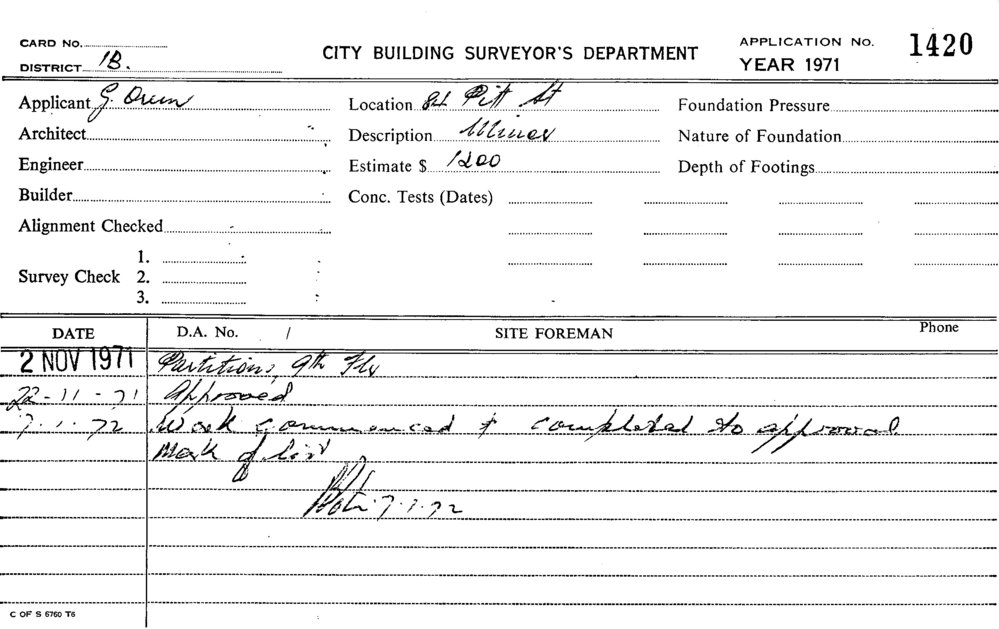 CARD No.
DISTRICT 1B.
CITY BUILDING SURVEYOR'S DEPARTMENT
APPLICATION No. 1420
YEAR 1971
Applicant G.
Location Pitt St
Foundation Pressure
Architect
Description Minor
Nature of Foundation
Engineer
Estimate $ 1200
Depth of Footings
Builder
Conc. Tests (Dates)
Alignment Checked
Survey Check 1.
2.
3.
DATE D.A. No. / SITE FOREMAN Phone
2 NOV 1971 Partitions, 9th Flr
22-11-71 Approved
7.1.72 Work commenced & completed to approval.
Mark off list
7.1.72
C OF S 6760 T6